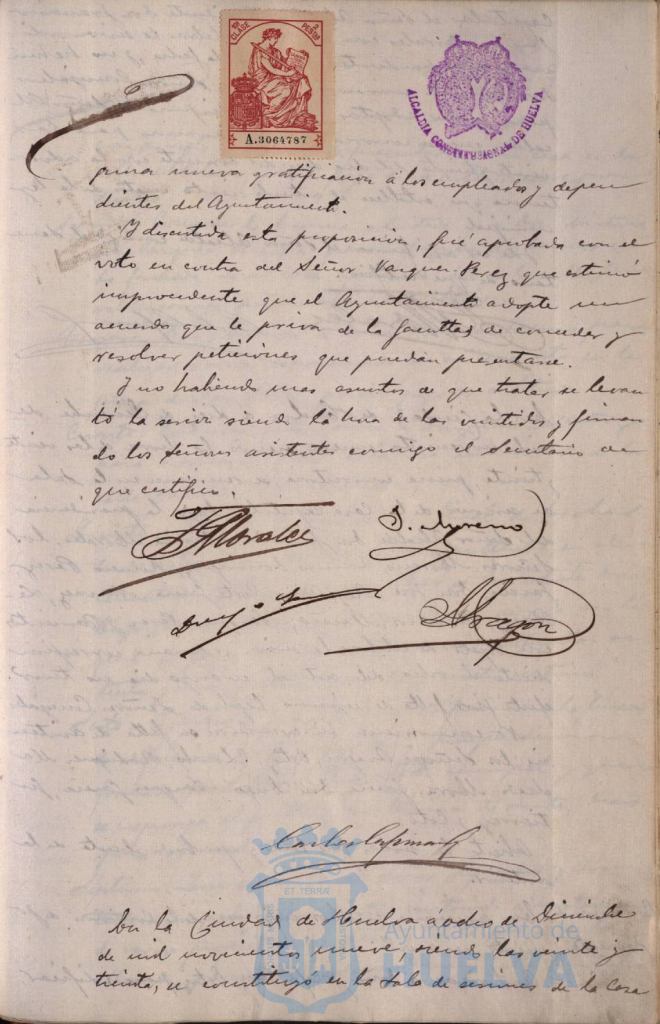 1ª CLASE 2 PESETAS
A.3064787
ALCALDIA CONSTITUCIONAL DE HUELVA
nueva gratificación á los empleados y depen
dientes del Ayuntamiento.
Y discutida esta proposición, fué aprobada con el
voto en contra del Señor Vazquez Perez que estimó
improcedente que el Ayuntamiento adopte un
acuerdo que le priva de la facultad de conceder y
resolver peticiones que puedan presentarse.
Y no habiendo mas asuntos de que tratar se levan
tó la sesion siendo la hora de las veintidos y firman
do los Señores asistentes conmigo el Secretario de
que certifico.
Morales
J. Moreno
Aragon
Carlos
ET TERRÆ
En la Ciudad de Huelva á ocho de Diciembre
de mil novecientos nueve, siendo las veinte y
treinta, se constituyó en la Sala de sesiones de la Casa
Ayuntamiento de
HUELVA